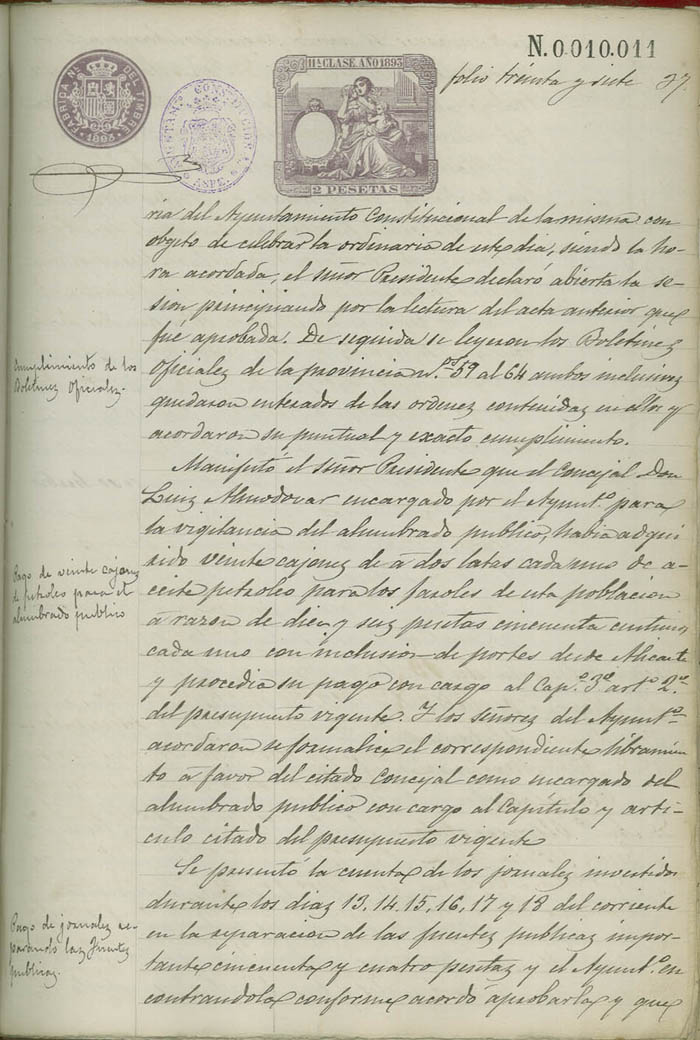 N.0.010.011
folio treinta y siete 37
FABRICA NAL DEL TIMBRE
1893
CONSTITUCIONAL
ASPE
11ª CLASE. AÑO 1893
2 PESETAS
ria del Ayuntamiento Constitucional de la misma con
objeto de celebrar la ordinaria de este dia, siendo la ho-
ra acordada, el señor Presidente declaró abierta la se-
sion principiando por la lectura del acta anterior que
fué aprobada. De seguida se leyeron los Boletines
Oficiales de la provincia n.os 59 al 64 ambos inclusives
quedaron enterados de las ordenes contenidas en ellos y
acordaron su puntual y exacto cumplimiento.
Cumplimiento de los
Boletines Oficiales.
Manifestó el señor Presidente que el Concejal Don
Luis Almodovar encargado por el Ayunt.o para
la vigilancia del alumbrado publico, habia adqui-
rido veinte cajones de á dos latas cada uno de a-
ceite petroleo para los faroles de esta poblacion
á razon de diez y seis pesetas cincuenta centimos
cada uno con inclusion de portes desde Alicante
y procedia su pago con cargo al Cap.o 3.o art.o 2.o
del presupuesto vigente. Y los señores del Ayunt.o
acordaron se formalice el correspondiente libramien-
to á favor del citado Concejal como encargado del
alumbrado publico con cargo al Capítulo y artí-
culo citado del presupuesto vigente
Pago de veinte cajones
de petroleo para el
alumbrado publico
Se presentó la cuenta de los jornales invertidos
durante los dias 13, 14, 15, 16, 17 y 18 del corriente
en la reparacion de las fuentes publicas impor-
tante cincuenta y cuatro pesetas y el Ayunt.o en
contrandola conforme acordó aprobarla y que
Pago de jornales re-
parando las fuentes
publicas.